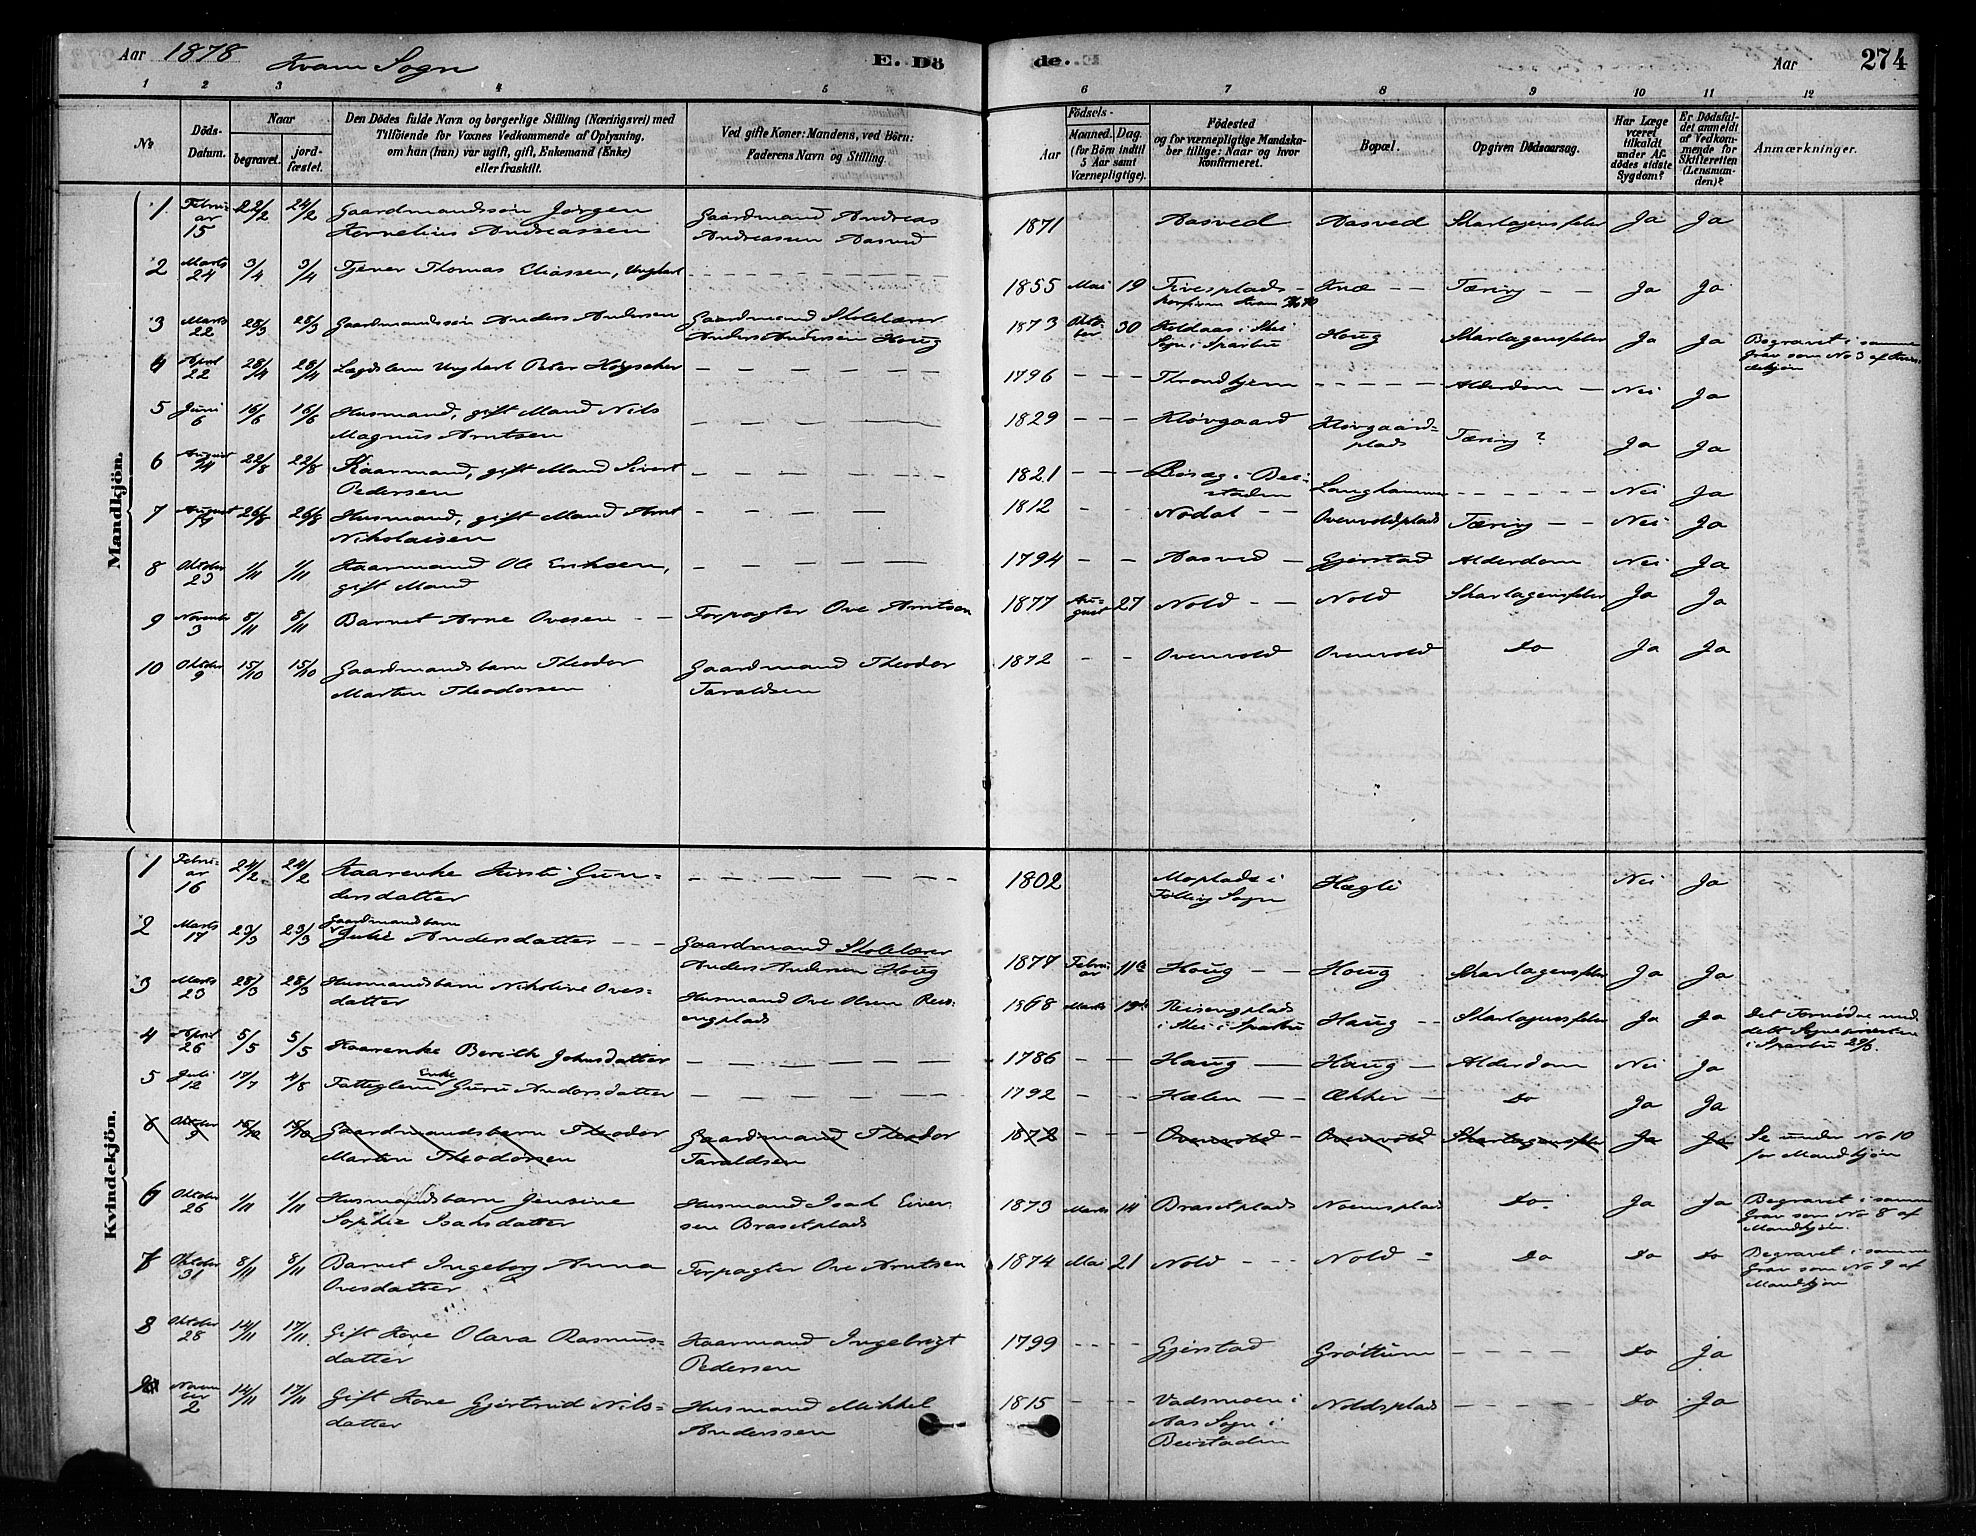 Aar 1878 Kvam Sogn E. Dö de. Aar 274
1 2 3 4 5 6 7 8 9 10 11 12
№ Döds-Datum. Naar begravet. jordfæstet. Den Dödes fulde Navn og borgerlige Stilling (Næringsvei) med Tilföiende for Voxnes Vedkommende af Oplysning, om han (hun) var ugift, gift, Enkemand (Enke) eller fraskilt. Ved gifte Koner: Mandens, ved Börn: Faderens Navn og Stilling. Födsels- Aar Maaned. Dag. (for Börn indtil 5 Aar samt Værnepligtige). Födested og for værnepligtige Mandskaber tillige: Naar og hvor konfirmeret. Bopæl. Opgiven Dödsaarsag. Har Læge været tilkaldt under Afdödes sidste Sygdom? Er Dödsfaldet anmeldt af Vedkommende for Skifteretten (Lensmanden)? Anmærkninger.
Mandkjön.
1 Februar 15 22/2 24/2 Gaardmandssøn Jørgen Kornelius Andreassen Gaardmand Andreas Andreassen Aasved 1871 Aasved Aasved Skarlagensfeber Ja Ja
2 Marts 24 3/4 3/4 Tjener Thomas Eliassen, Ungkarl 1855 Mai 19 Knæ Tæring Ja Ja
3 Marts 22 28/3 28/3 Gaardmandssøn Anders Andersen Gaardmand Skolelærer Anders Andersen Houg 1873 Oktober 30 Sogn i Sparbu Houg Skarlagensfeber Ja Ja Begravet i samme Grav som No 3 af Kvindekjøn
4 April 22 28/4 28/4 Lægdslem Ungkarl Peter 1796 Throndhjem Alderdom Nei Ja
5 Juni 6 16/6 16/6 Husmand, gift Mand Nils Magnus Arntsen 1829 Kløvgaard Kløvgaardplads Tæring? Ja Ja
6 August 22/8 22/8 Kaarmand, gift Mand Sivert Pedersen 1821 i Beistaden Langhammer Nei Ja
7 August 26/8 26/8 Husmand, gift Mand Arnt Nikolaisen 1812 Nodal Ovenvoldplads Tæring Nei Ja
8 Oktober 23 1/11 1/11 Kaarmand Ole Eriksen, gift Mand 1794 Aasved Gjørstad Alderdom Nei Ja
9 November 3 8/11 8/11 Barnet Arne Ovesen Forpagter Ove Arntsen 1877 August 27 Nold Nold Skarlagensfeber Ja Ja
10 Oktober 9 15/10 15/10 Gaardmandsbarn Theodor Martin Theodorsen Gaardmand Theodor Taraldsen 1872 Ovenvold Ovenvold Do Ja Ja
Kvindekjön.
1 Februar 16 24/2 24/2 Kaarenke Kirsti Gundersdatter 1802 Moplads i Følling Sogn Hægli Nei Ja
2 Marts 17 23/3 23/3 Gaardmandsbarn Julie Andersdatter Gaardmand Skolelærer Anders Andersen Houg 1877 Februar 11te Houg Houg Skarlagensfeber Ja Ja
3 Marts 23 28/3 28/3 Husmandsbarn Nikoline Ovesdatter Husmand Ove Olsen 1868 Marts Haug Skarlagensfeber Ja Ja Det Fornødne meddelt Sognepresten i Sparbu
4 April 26 5/5 5/5 Kaarenke Bereth Johnsdatter 1786 Haug Haug Alderdom Nei Ja
5 Juli 12 17/7 4/8 Fattiglem Enke Guru Andersdatter 1792 Hælen Økker Do Ja Ja
6 Oktober 9 15/10 15/10 Gaardmandsbarn Theodor Martin Theodorsen Gaardmand Theodor Taraldsen 1872 Ovenvold Ovenvold Skarlagensfeber Ja Ja Se under No 10 for Mandkjøn
6 Oktober 26 1/11 1/11 Husmandsbarn Jensine Sophie Isaksdatter Husmand Isak Eivensen Brasetplads 1873 Marts 14 Brasetplads Noemsplads Do. Ja Ja Begravet i samme Grav som No 8 af Mandkjøn
7 Oktober 31 8/11 8/11 Barnet Ingeborg Anna Ovesdatter Forpagter Ove Arntsen 1874 Mai 21 Nold Nold Do Do Do Begravet i samme Grav som No 9 af Mandkjøn
8 Oktober 28 14/11 17/11 Gift Kone Olava Rasmusdatter Kaarmand Ingebrigt Pedersen 1799 Gjørstad Grøttum Do Ja
November 2 14/11 17/11 Gift Kone Gjertrud Nilsdatter Husmand Mikkel Anderssen 1815 Vadsmoen i Aas Sogn i Beistaden Noldsplads Do Ja